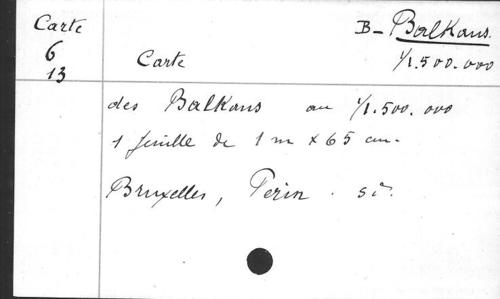 Carte
6
13
B- Balkans.
1/1.500.000
Carte
des Balkans au 1/1.500.000
1 feuille de 1 m x 65 cm.
Bruxelles, Perin.